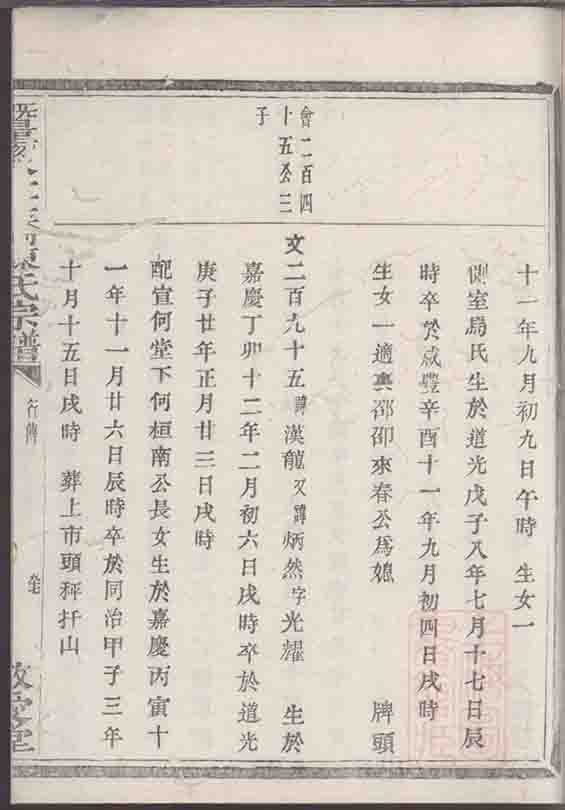 十一年九月初九日午時　生女一
側室馬氏生於道光戊子八年七月十七日辰
時卒於咸豐辛酉十一年九月初四日戌時
生女一適裏邵邵來春公為媳　牌頭
會二百四
十五公三
子
文二百九十五諱漢龍又諱炳然字光耀　生於
嘉慶丁卯十二年二月初六日戌時卒於道光
庚子廿年正月廿三日戌時
配宣何堂下何桓南公長女生於嘉慶丙寅十
一年十一月廿六日辰時卒於同治甲子三年
十月十五日戌時　葬上市頭秤扞山
陳氏宗譜
行傳
敬愛堂